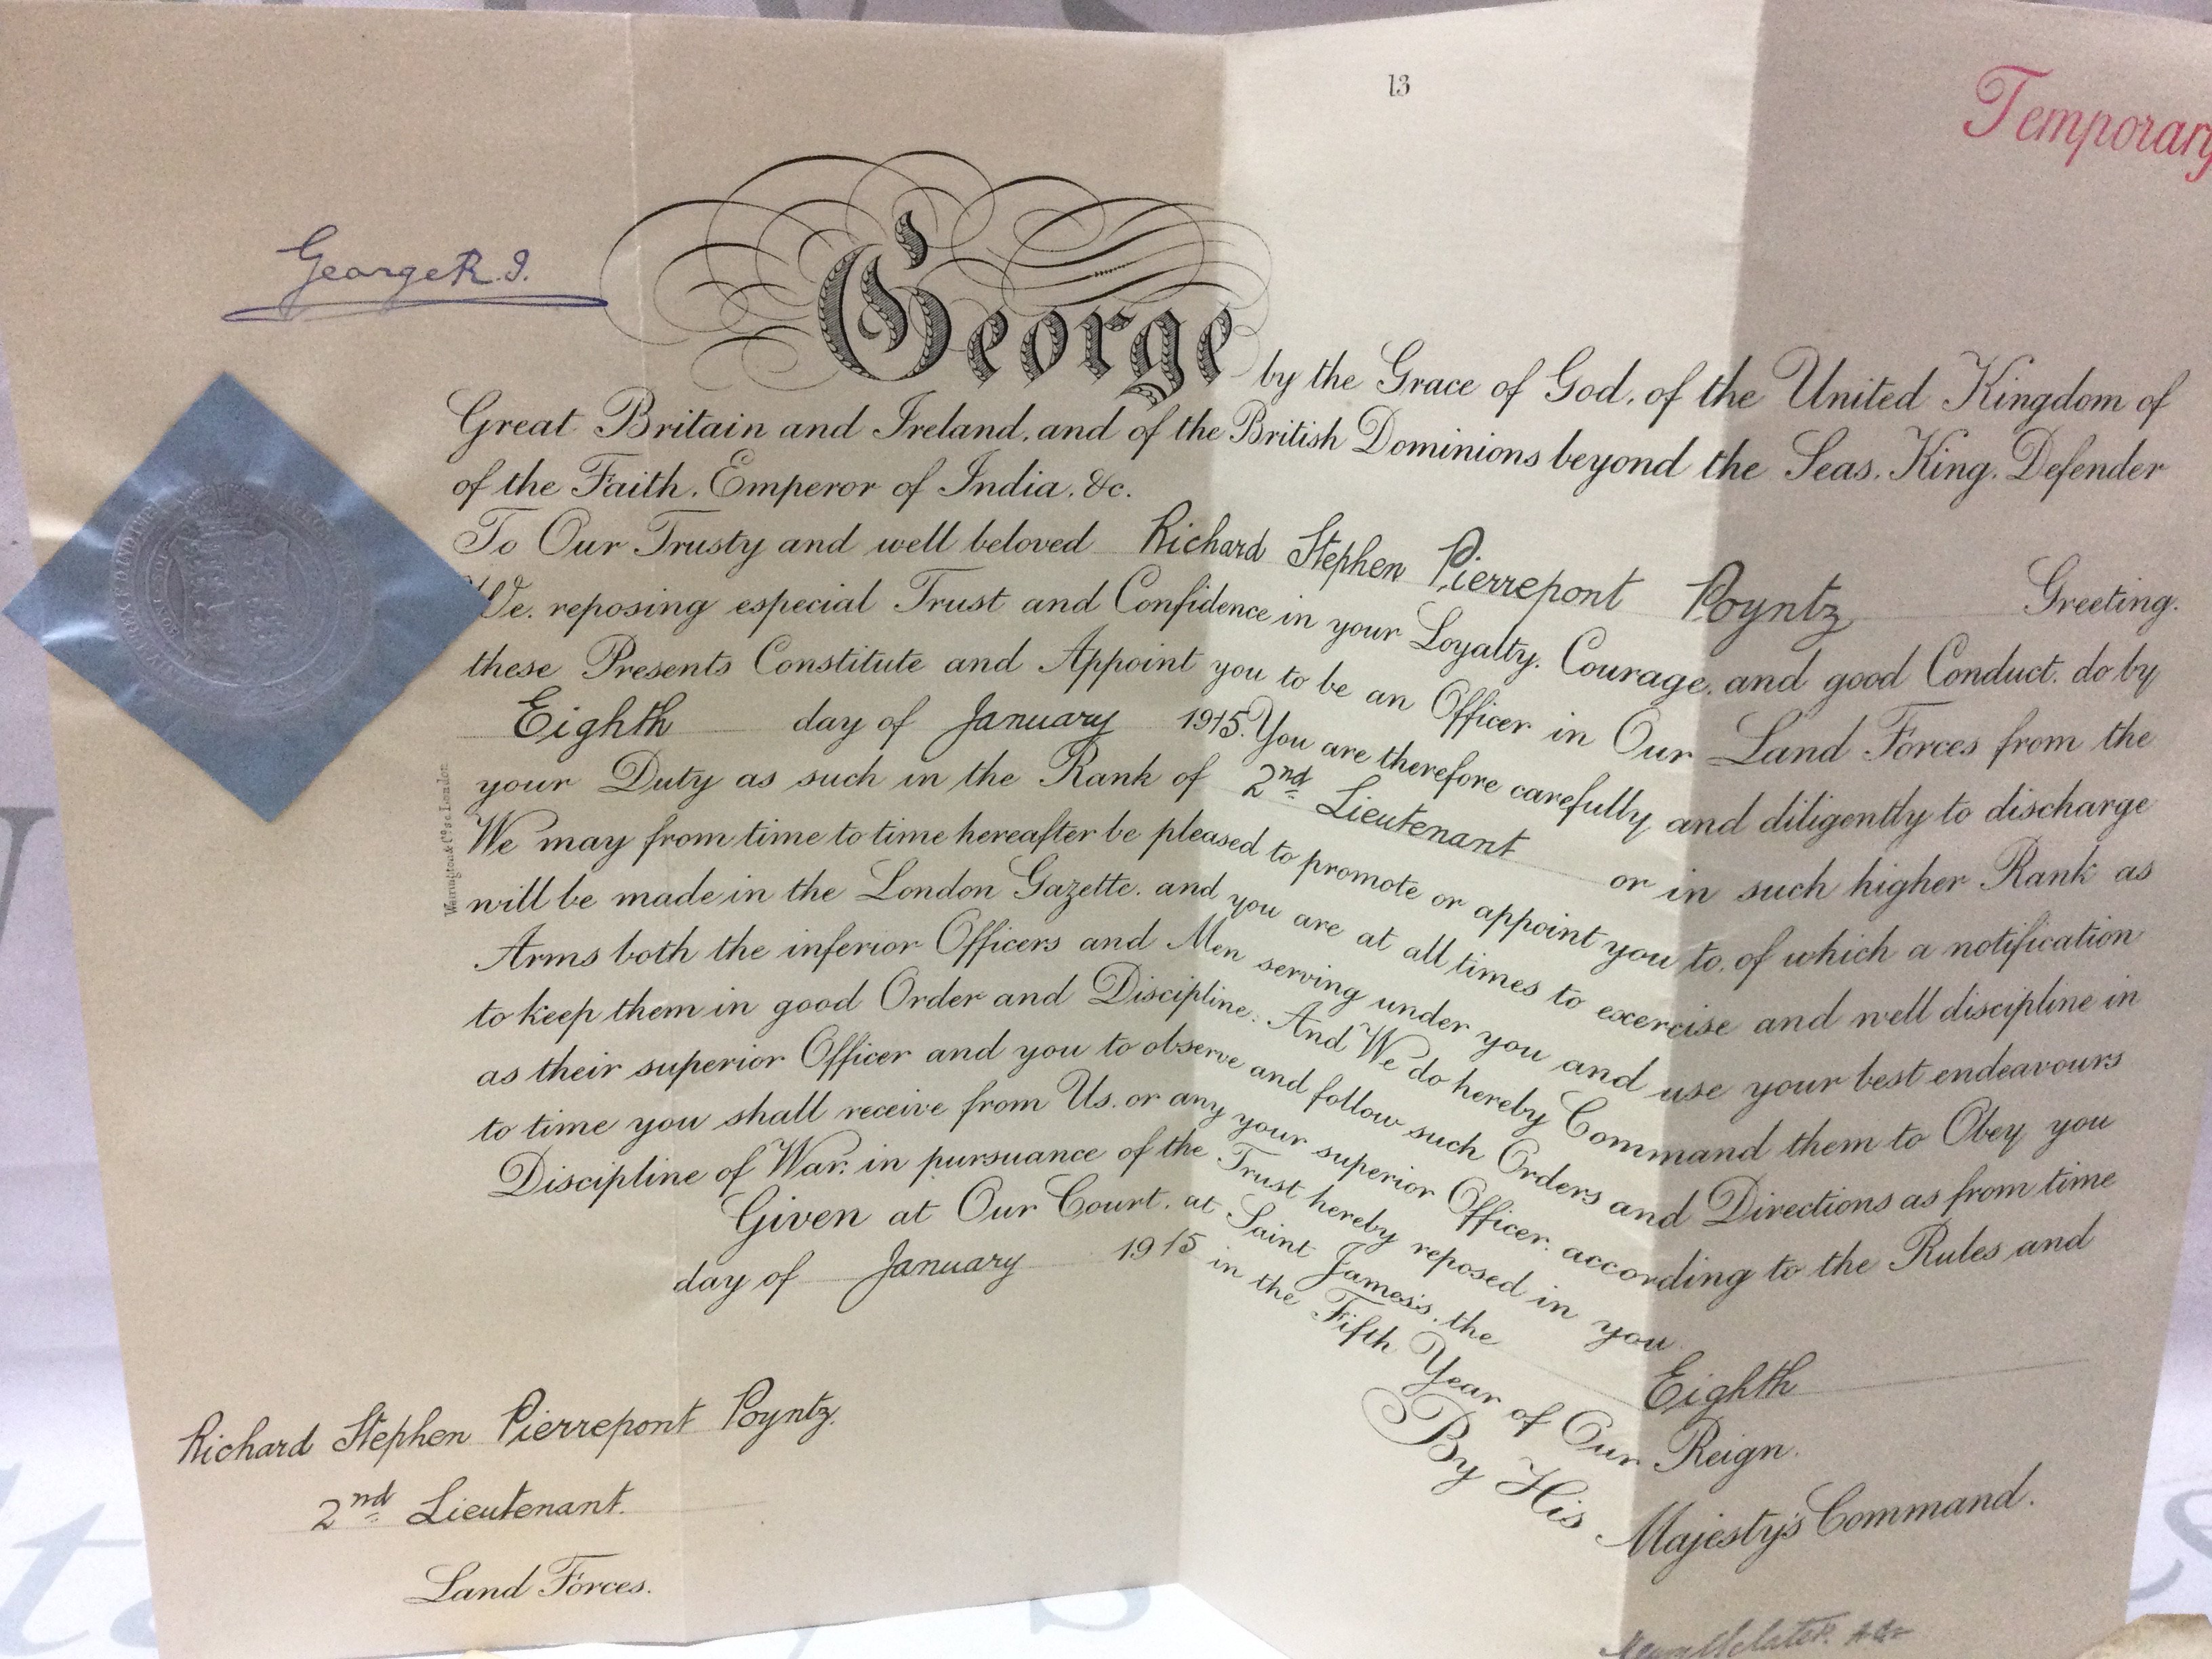 13
Temporary
George R.I.
George by the Grace of God, of the United Kingdom of
Great Britain and Ireland, and of the British Dominions beyond the Seas, King, Defender
of the Faith, Emperor of India, &c.
To Our Trusty and well beloved Richard Stephen Pierrepont Poyntz Greeting.
We, reposing especial Trust and Confidence in your Loyalty, Courage, and good Conduct, do by
these Presents Constitute and Appoint you to be an Officer in Our Land Forces from the
Eighth day of January 1915. You are therefore carefully and diligently to discharge
your Duty as such in the Rank of 2nd Lieutenant or in such higher Rank as
We may from time to time hereafter be pleased to promote or appoint you to, of which a notification
will be made in the London Gazette, and you are at all times to exercise and well discipline in
Arms both the inferior Officers and Men serving under you and use your best endeavours
to keep them in good Order and Discipline. And We do hereby Command them to Obey you
as their superior Officer and you to observe and follow such Orders and Directions as from time
to time you shall receive from Us, or any your superior Officer, according to the Rules and
Discipline of War, in pursuance of the Trust hereby reposed in you.
Given at Our Court, at Saint James's, the Eighth
day of January 1915 in the Fifth Year of Our Reign.
By His Majesty's Command.
Richard Stephen Pierrepont Poyntz.
2nd Lieutenant.
Land Forces.